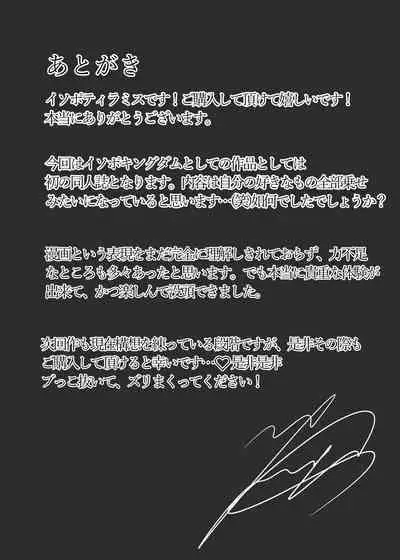 あとがき
イソポティラミスです！ご購入して頂けて嬉しいです！
本当にありがとうございます。
今回はイソポキングダムとしての作品としては
初の同人誌となります。内容は自分の好きなもの全部乗せ
みたいになっていると思います…(笑)如何でしたでしょうか？
漫画という表現をまだ完全に理解しきれておらず、力不足
なところも多々あったと思います。でも本当に貴重な体験が
出来て、かつ楽しんで没頭できました。
次回作も現在構想を練っている段階ですが、是非その際も
ご購入して頂けると幸いです…♡是非是非
ブっこ抜いて、ズリまくってください！